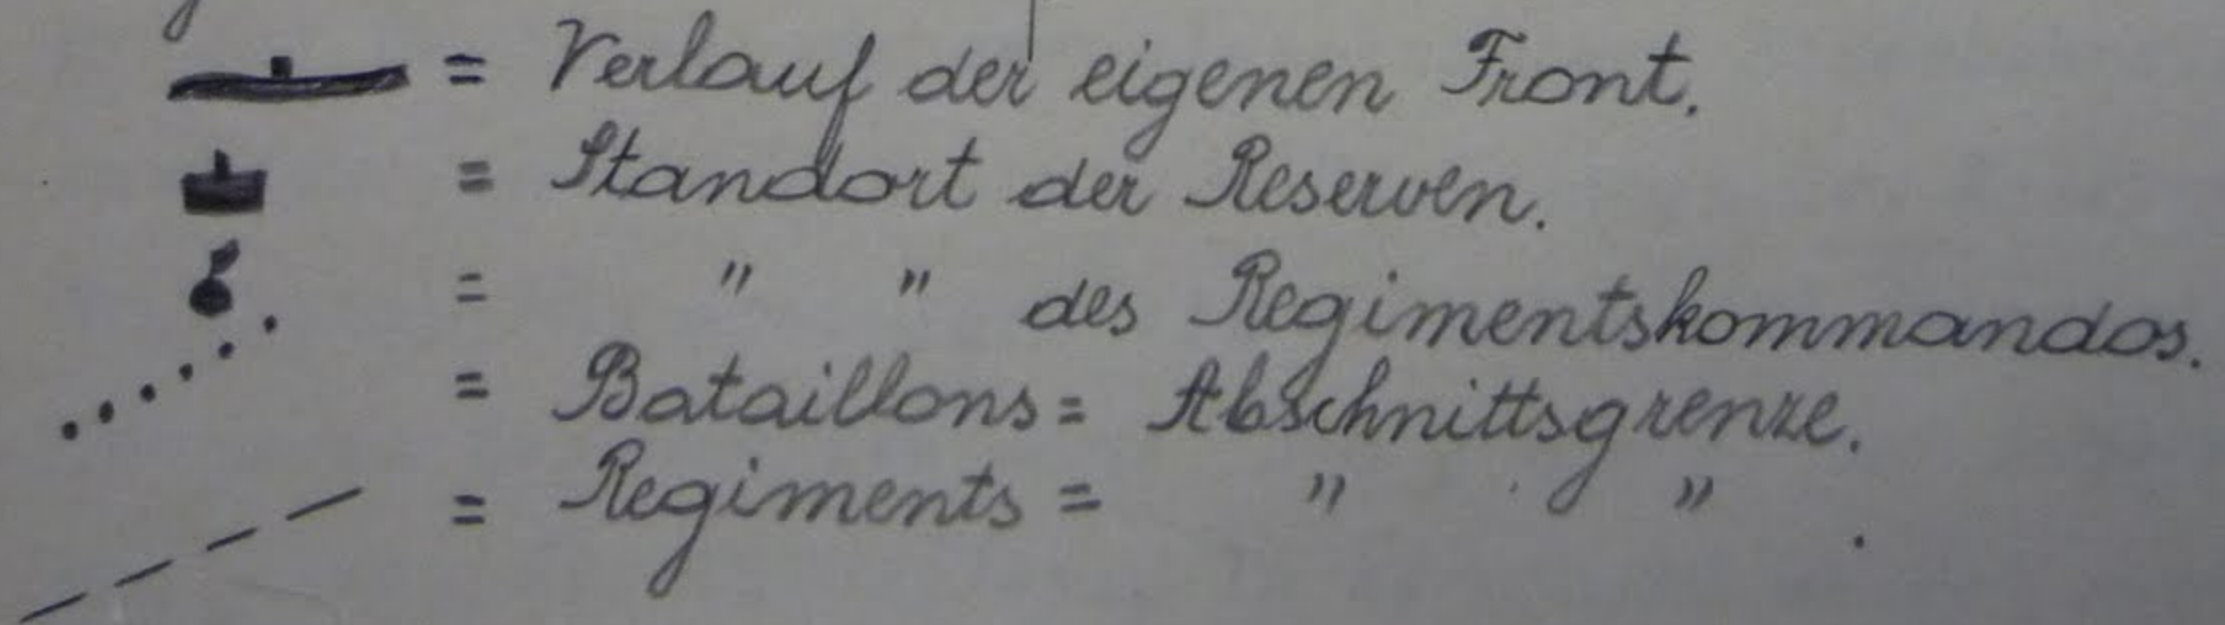 = Verlauf der eigenen Front.
= Standort der Reserven.
= " " des Regimentskommandos.
= Bataillons= Abschnittsgrenze.
= Regiments= " " .